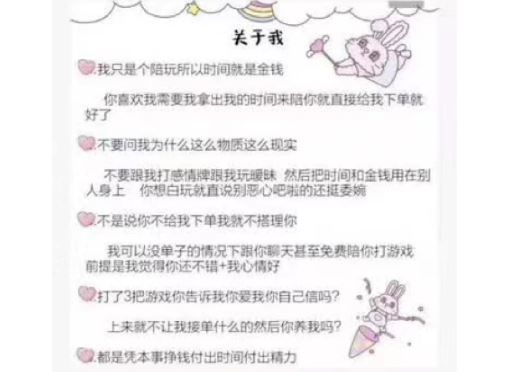 关于我
我只是个陪玩所以时间就是金钱
你喜欢我需要我拿出我的时间来陪你就直接给我下单就
好了
不要问我为什么这么物质这么现实
不要跟我打感情牌跟我玩暧昧 然后把时间和金钱用在别
人身上 你想白玩就直说别恶心吧啦的还挺委婉
不是说你不给我下单我就不搭理你
我可以没单子的情况下跟你聊天甚至免费陪你打游戏
前提是我觉得你还不错+我心情好
打了3把游戏你告诉我你爱我你自己信吗?
上来就不让我接单什么的然后你养我吗?
都是凭本事挣钱付出时间付出精力